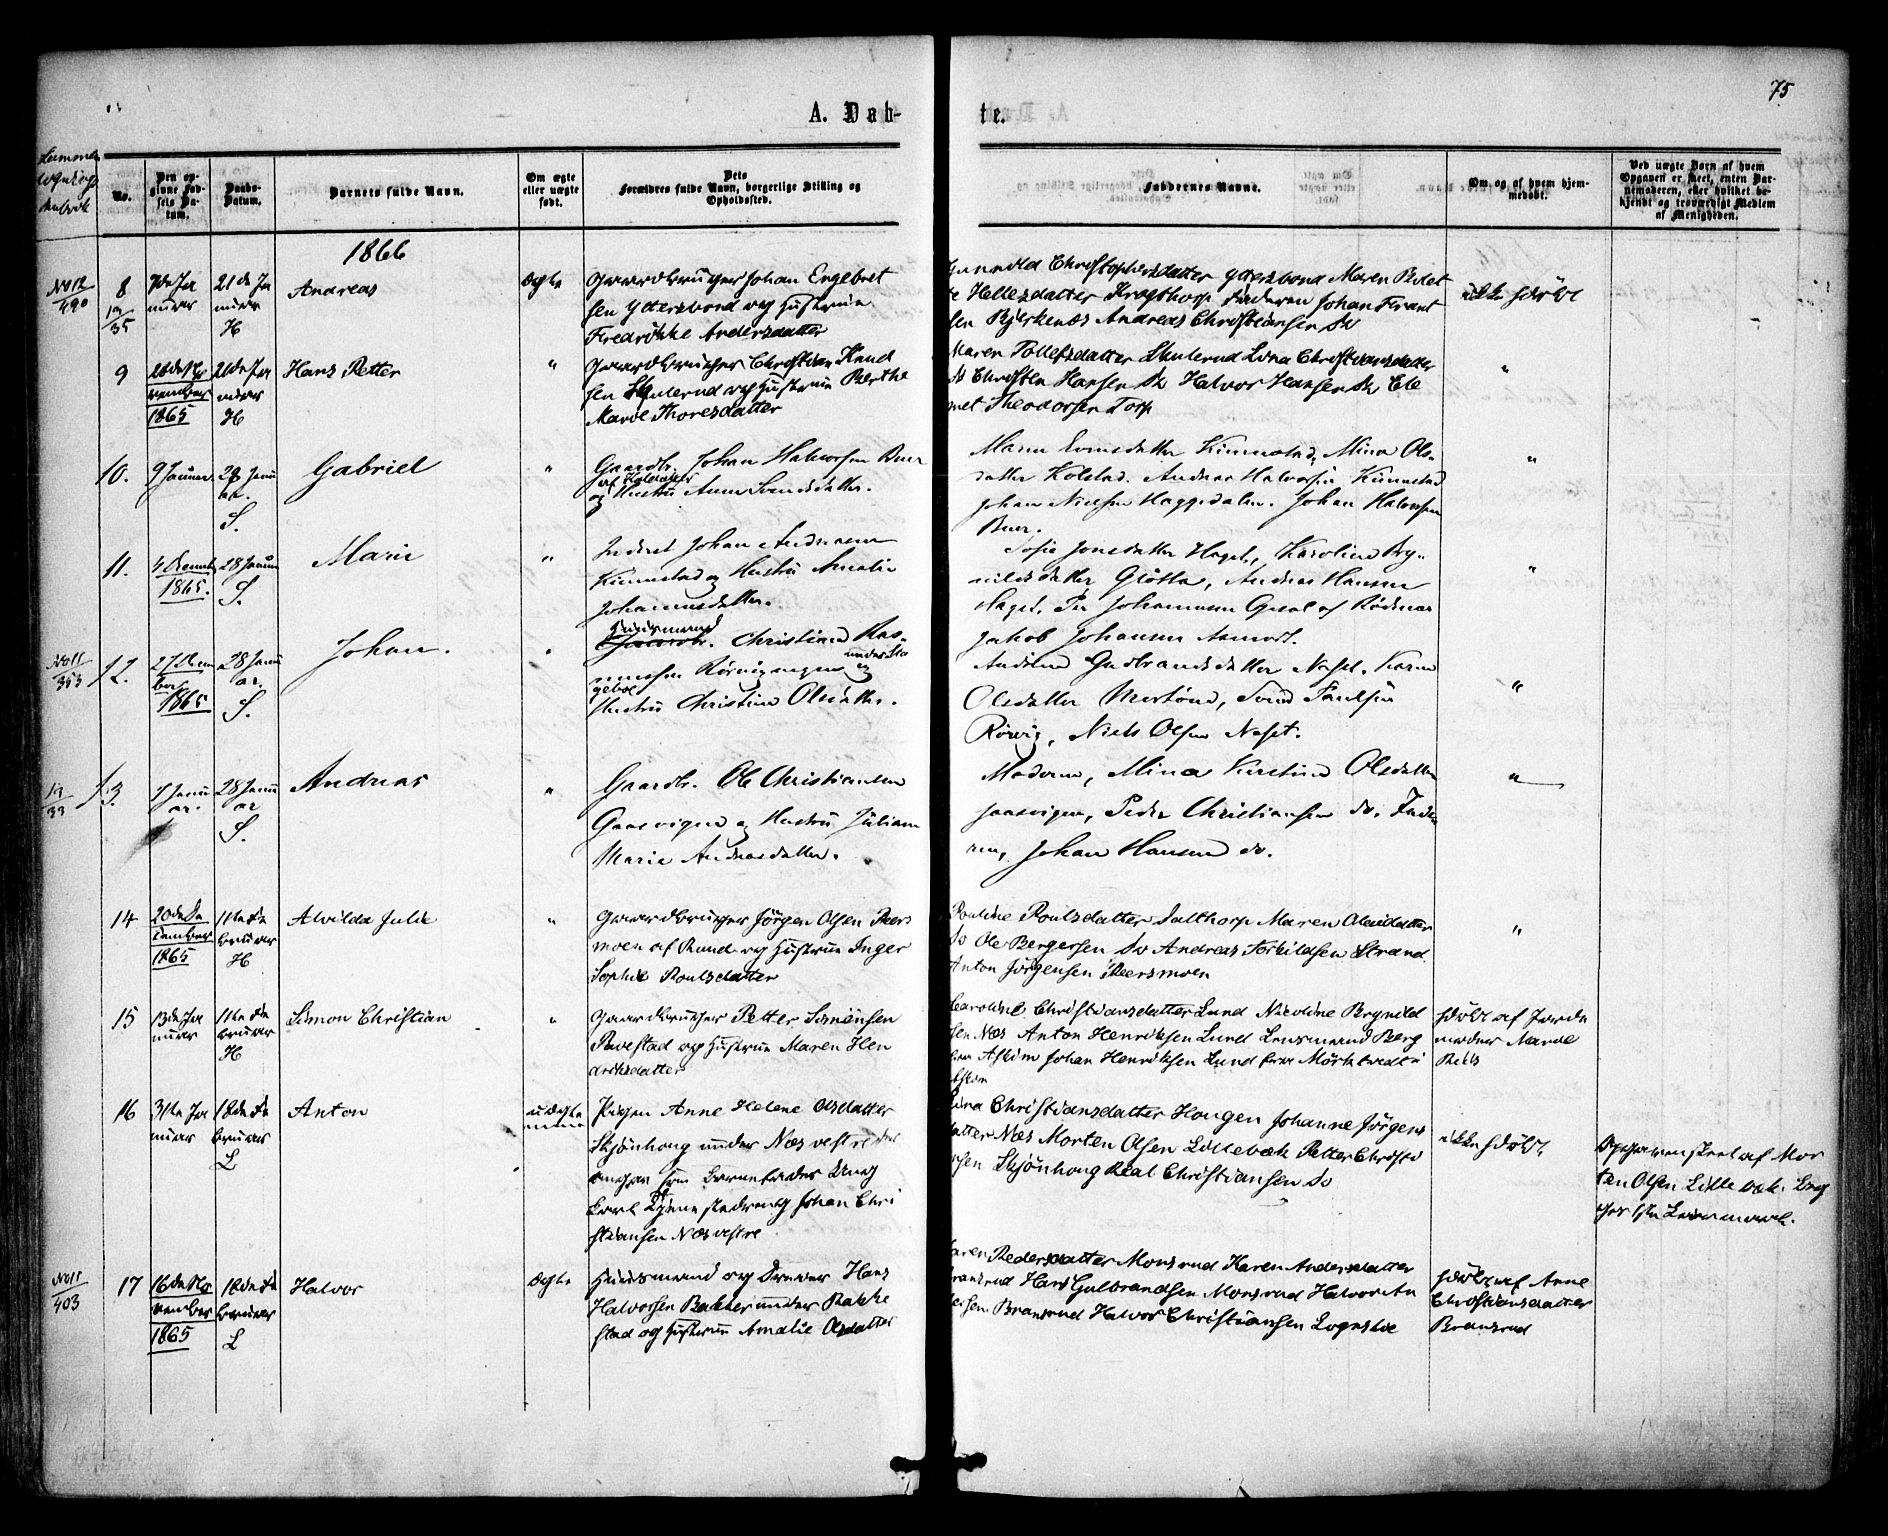 75
A. Døb-
te.
No.
Den op-
givne Fød-
sels Da-
tum.
Daabs-
Datum.
Barnets fulde Navn.
Om ægte
eller uægte
født.
Dets
Forældres fulde Navn, borgerlige Stilling og
Opholdssted.
Faddernes Navne.
Om og af hvem hjem-
medøbt.
Ved uægte Børn af hvem
Opgaven er skeet, enten Bar-
nemoderen, eller hvilket be-
kjendt og troværdigt Medlem
af Menigheden.
1866
8
7de Ja
nuar
21de Ja
nuar
H
Andreas
Ægte
Gaardbruger Johan Engebret
sen Yttersbond og Hustrue
Fredrikke Andersdatter
Gunnild Christophersdatter Yttersbond Maren
Hellesdatter Krogstorp Faderen Johan
sen Bjerkenæs Andreas Christiansen Do
ikke hjdøbt
9
26de No
vember
1865
21de Ja
nuar
H
Hans Petter
"
Gaardbruger Christian Knud
sen Skulerud og Hustrue Berthe
Marie Thoresdatter
Maren Tollefsdatter Skulerud Lina Christiansdatter
Do Christen Hansen Do Halvor Hansen Do Cle
met Theodorsen Torp
"
10.
9 Januar
28 Janu
ar.
S.
Gabriel
"
Gaardbr. Johan Halvorsen Buer
og Hustru Anne Svendsdatter.
Maren Svensdatter Kinnestad, Mina Ols-
datter Kolstad. Andreas Halvorsen Kinnestad
Johan Nielsen Haggedalen. Johan Halvorsen
Buer.
"
11.
4 Decemb
1865.
28 Januar
S.
Marie
"
Inderst Johan Andreasen
Kinnestad og Hustru Amalie
Johannesdatter.
Sofie Jonsdatter Haget, Karoline Bry-
nildsdatter Gløtta, Andreas Hansen
Haget, Per Johannesen af Rødenæs
Jakob Johansen
"
No 11
353
12.
27 Decem
ber
1865
28 Janu
ar.
S.
Johan.
"
Huusmand
Christian Ras-
mussen Rørvigengen
Hustru Christine Olsdatter.
Andrine Gudbrandsdatter Neset. Karen
Olsdatter Svend Paulsen
Rørvig, Niels Olsen Neset.
"
13
33
13.
7 Janu
ar.
28 Janu
ar
S.
Andreas
"
Gaardbr. Ole Christiansen
Gaasvigen og Hustru Juliane
Marie Andreasdatter.
Moderen, Mina Kirstine Olsdatter
Gaasvigen, Peder Christiansen do. Fade-
ren, Johan Hansen do.
"
14
20de De
cember
1865
11te Fe
bruar
H
Alvilda Julie
"
Gaardbruger Jörgen Olsen Peers
moen af Rand og Hustrue Inger
Sophie Poulsdatter
Pouline Poulsdatter Dalthorp Maren Olausdatter
Do Ole Bergersen Do Andreas Torkildsen Strand
Anton Jörgensen Peersmoen
"
15
13de Ja
nuar
11te Fe
bruar
H
Simon Christian
"
Gaardbruger Petter Simensen
Pavestad og Hustrue Maren Hen
driksdatter
Caroline Christiansdatter Lund Nicoline Brynild
sen Næs Anton Henriksen Lund Lensmand Berg
fra Askim Johan Henriksen Lund fra Mörk
hjdøbt af Jorde
moder Marie
Beck
16
31te Ja
nuar
18de Fe
bruar
L
Anton
uægte
Pigen Anne Helene Olsdatter
Skjönhoug under Næs vestre der
angav som Barnefader Ung
karl Johan Chri
stiansen Næs vestre
Lina Christiansdatter Hougen Johanne Jörgens
datter Næs Morten Olsen Lillebæk Petter Christi
ansen Skjönhoug Real Christiansen Do
ikke hjdøbt
Opgaven skeet af Mor
ten Olsen Lillebæk.
No 11
403
17
16de No
vember
1865
18de Fe
bruar
L
Halvor
Ægte
Huusmand og Hans
Halvorsen Bakker under Rakke
stad og Hustrue Amalie Olsdatter
Karen Pedersdatter Monsrud Karen Andersdatter
Bransrud Hans Gulbrandsen Monsrud Halvor An
dersen Bransrud Halvor Christiansen
hjdøbt af Anne
Christiansdatter
Bransrud